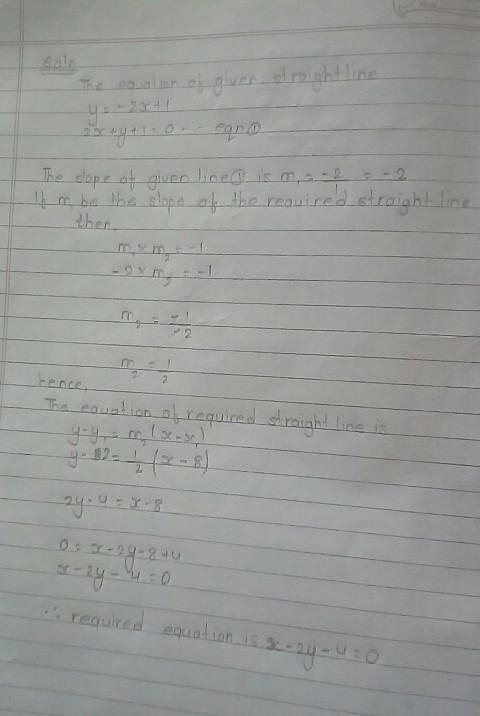 Soln
The equation of given straight line
y = -2x+1
2x+y+1=0 -- eqn①
The slope of given line① is m₁ = -2/1 = -2
If m₂ be the slope of the required straight line
then,
m₁ × m₂ = -1
-2 × m₂ = -1
m₂ = -1/-2
m₂ = 1/2
hence,
The equation of required straight line is
y-y₁ = m₂(x-x₁)
y-2 = 1/2 (x-8)
2y-4 = x-8
0 = x-2y-8+4
x-2y-4=0
∴ required equation is x-2y-4=0